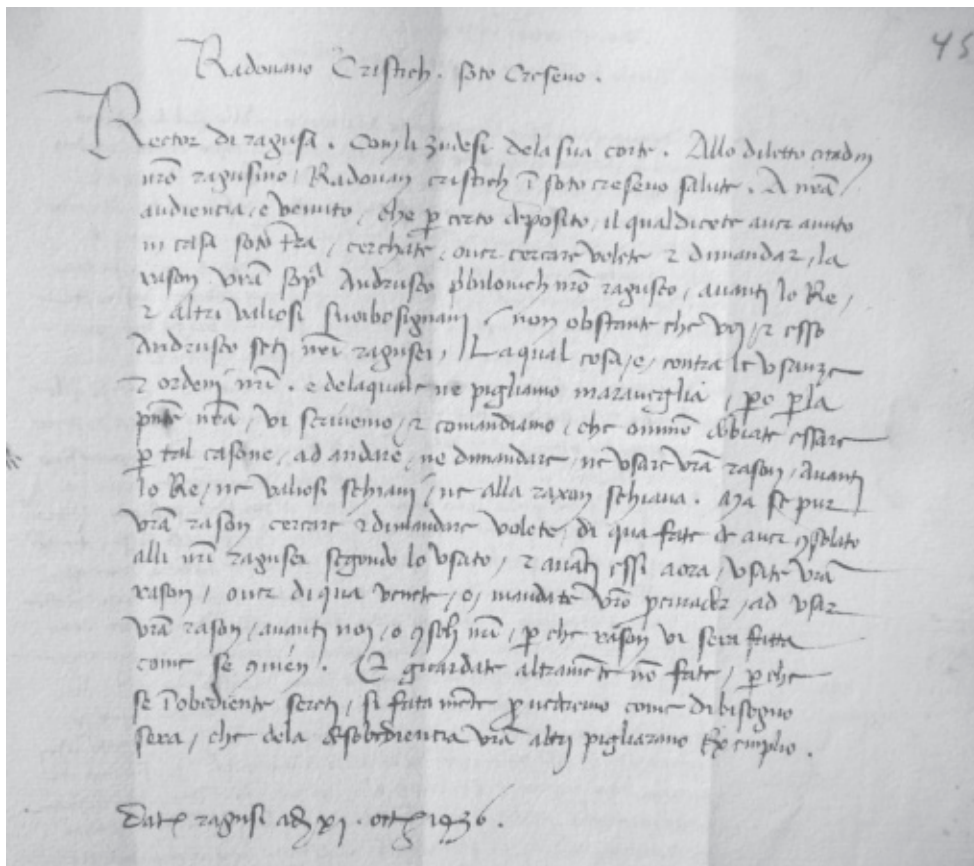 45
Radovano Cristich . soto Creseno .
Rector di ragusa . Con li zudesi dela sua corte . Allo diletto citadin
nr̄o ragusino / Radovan cristich ī soto creseno salute . A nr̄a
audiencia / e venuto / che p certo deposito / il qual dicete aver avuto
in casa soto tr̄a / cerchate / over cercare volete & dimandar / la
rason vr̄a Andrusco nr̄o raguseo / avanti lo Re /
& altri valiosi non obstante che voj / & esso
Andrusco seti nr̄i ragusei / La qual cosa / e / contra le usanze
& ordenj nr̄i . e dela quale ne pigliamo maraveglia / po p la
pn̄te nr̄a / vi scrivemo / & comandiamo / che debiate essare
p tal casone / ad andare / ne dimandare / ne usare vr̄a rason / Avanti
lo Re / ne valiosi schiavi / ne alla raxon schiava . Ma se pur
vr̄a rason cercare & dimandare volete / di qua fate de aver 9solato
alli nr̄i ragusei segondo lo usato / & avāti essi aora / usate vr̄a
rason / over di qua venete / o / mandate vr̄o / ad usar
vr̄a rason / avanti noj / o 9soli nr̄i / p che rason vi sera fatta
come se 9vien . Et guardate altramēte nō fate / p che
se īobediente sereti / si fatamēte pvederemo come di bisogno
sera / che dela desobediencia vr̄a altri pigliarano Exemplio .
Dat ragusi adj xj . 1436 .